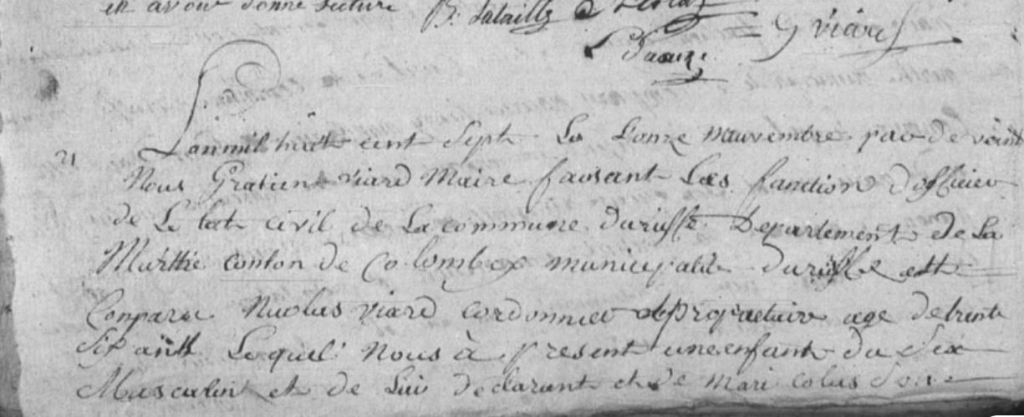 en avoir donné lecture B: Lataillz
G viard
21 Lanmil huit cent Sept Le Lonze nauvembre par de vant
Nous Gratien viard Maire faisant Les fanction dofficier
de Le tat civil de La commune duriffe Departement de La
Murthe conton de Colombex municipalite duriffe est
Conparu Nicolas viard cordonnier et propriataire age de trent
Six ants Lequel Nous à present une enfant du Sex
Masculint et de Lui declarant et de Mari colas Son